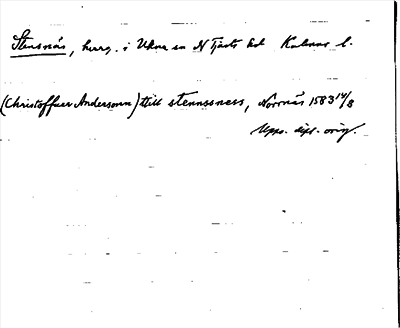 Stensnäs, herrg. i Ukna sn N Tjusts hd Kalmar l.
(Christoffuer Andersonn) till stennssness, Norrnäs 1583 14/8
Upps. dipl. orig.